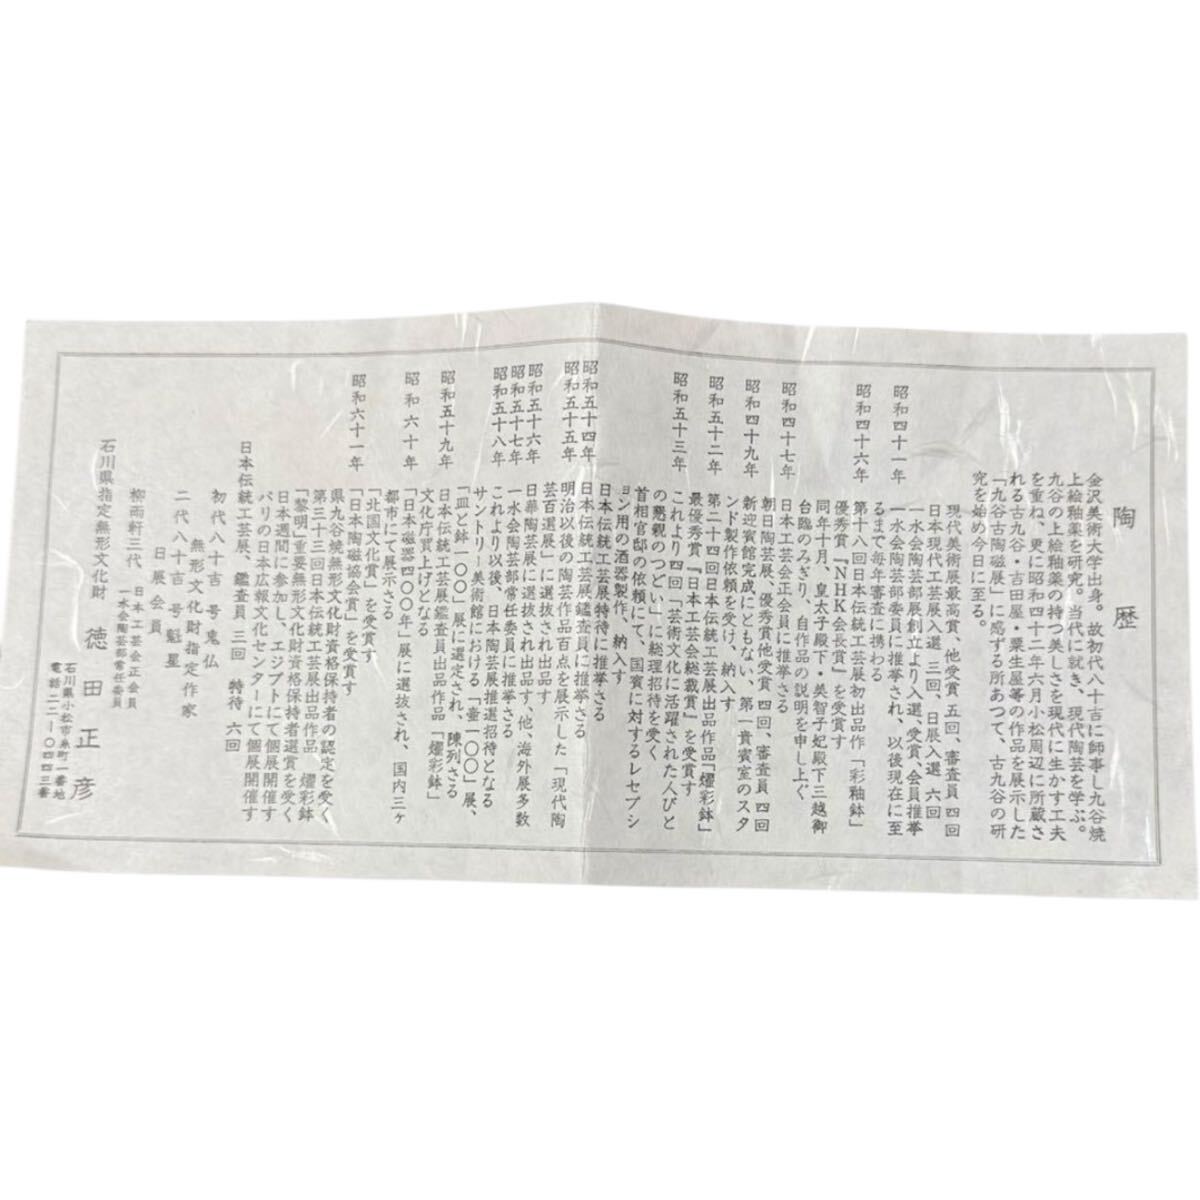 陶歴
金沢美術大学出身。故初代八十吉に師事し九谷焼
上絵釉薬を研究。当代に就き、現代陶芸を学ぶ。
九谷の上絵釉薬の持つ美しさを現代に生かす工夫
を重ね、更に昭和四十二年六月小松周辺に所蔵さ
れる古九谷・吉田屋・粟生屋等の作品を展示した
「九谷古陶磁展」に感ずる所あつて、古九谷の研
究を始め今日に至る。
現代美術展最高賞、他受賞 五回、審査員 四回
日本現代工芸展入選 三回、日展入選 六回
昭和四十一年 一水会陶芸部展創立より入選、受賞、会員推挙
一水会陶芸部委員に推挙され、以後現在に至
るまで毎年審査に携わる
昭和四十六年 第十八回日本伝統工芸展初出品作「彩釉鉢」
優秀賞『NHK会長賞』を受賞す
同年十月、皇太子殿下・美智子妃殿下三越御
台臨のみぎり、自作品の説明を申し上ぐ
昭和四十七年 日本工芸会正会員に推挙さる
朝日陶芸展、優秀賞他受賞 四回、審査員 四回
昭和四十九年 新迎賓館完成にともない、第一貴賓室のスタ
ンド製作依頼を受け、納入す
昭和五十二年 第二十四回日本伝統工芸展出品作品「燿彩鉢」
最優秀賞『日本工芸会総裁賞』を受賞す
昭和五十三年 これより四回「芸術文化に活躍された人びと
の懇親のつどい」に総理招待を受く
首相官邸の依頼にて、国賓に対するレセプシ
ョン用の酒器製作、納入す
日本伝統工芸展特待に推挙さる
昭和五十四年 日本伝統工芸展鑑査員に推挙さる
昭和五十五年 明治以後の陶芸作品百点を展示した「現代陶
芸百選展」に選抜され出品す
昭和五十六年 日華陶芸展に選抜され出品す、他、海外展多数
昭和五十七年 一水会陶芸部常任委員に推挙さる
昭和五十八年 これより以後、日本陶芸展推選招待となる
サントリー美術館における「壷一〇〇」展、
「皿と鉢一〇〇」展に選定され、陳列さる
昭和五十九年 日本伝統工芸展鑑査員出品作品「燿彩鉢」
文化庁買上げとなる
昭和六十年 「日本磁器四〇〇年」展に選抜され、国内三ヶ
都市にて展示さる
「北国文化賞」を受賞す
昭和六十一年 「日本陶磁協会賞」を受賞す
県九谷焼無形文化財資格保持者の認定を受く
第三十三回日本伝統工芸展出品作品 燿彩鉢
「黎明」重要無形文化財資格保持者選賞を受く
日本週間に参加し、エジプトにて個展開催す
パリの日本広報文化センターにて個展開催す
日本伝統工芸展、鑑査員 三回 特待 六回
初代八十吉 号鬼仏
無形文化財指定作家
二代八十吉 号魁星
日展会員
柳雨軒三代 日本工芸会正会員
一水会陶芸部常任委員
石川県指定無形文化財 徳田正彦
石川県小松市糸町一番地
電話二二―〇四四三番